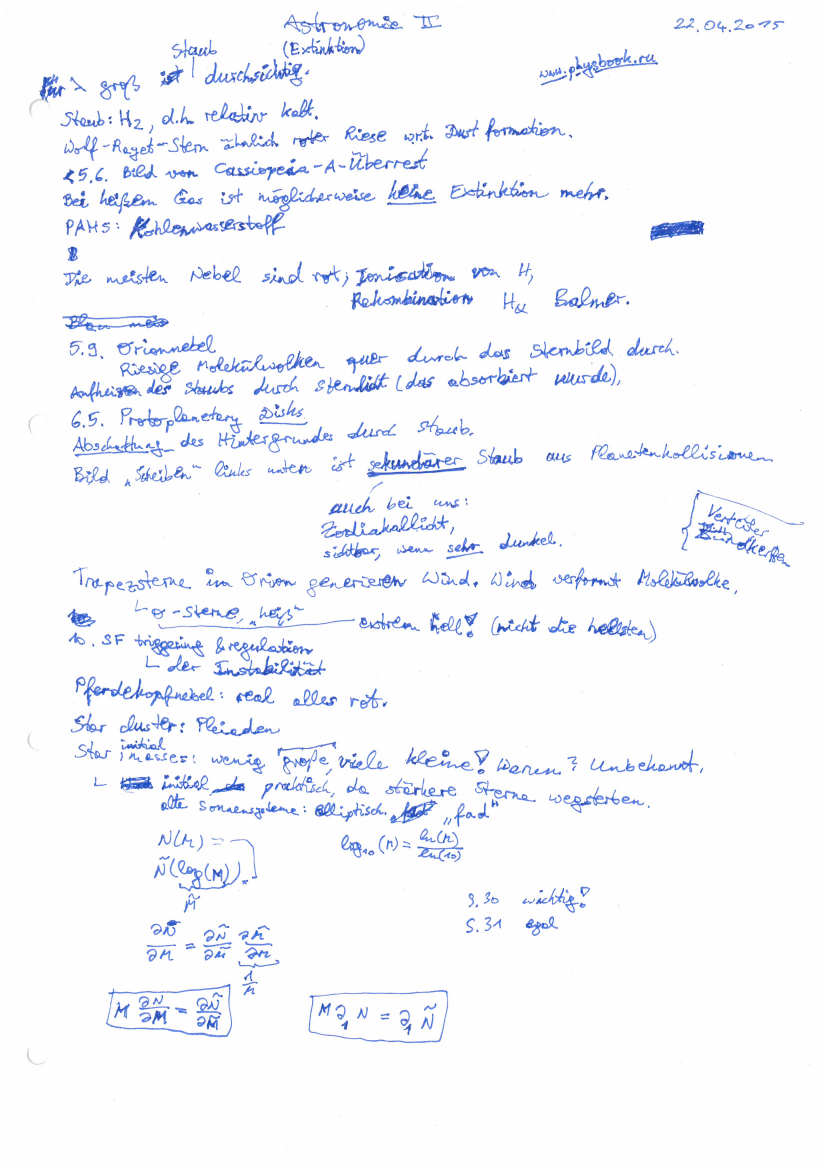 Astronomie II
22.04.2015
Staub (Extinktion)
www.physbook.ru
für λ groß ist durchsichtig.
Staub: H2, d.h. relativ kalt.
Wolf-Rayet-Stern ähnlich roter Riese wrt. Dust formation.
5.6. Bild von Cassiopeia-A-Überrest
Bei heißem Gas ist möglicherweise keine Extinktion mehr.
PAHS: Kohlenwasserstoff
Die meisten Nebel sind rot; Ionisation von H,
Rekombination Hα Balmer.
5.9. Orionnebel
Riesige Molekülwolken quer durch das Sternbild durch.
Aufheizen des Staubs durch Sternlicht (das absorbiert wurde),
6.5. Protoplanetary Disks
Abschattung des Hintergrundes durch Staub.
Bild „Scheiben" links unten ist sekundärer Staub aus Planetenkollisionen
auch bei uns:
Zodiakallicht,
sichtbar, wenn sehr dunkel.
Verteiler
Zündkerzen
Trapezsterne im Orion generieren Wind. Wind verformt Molekülwolke,
O-Sterne, „heiß" extrem hell! (nicht die hellsten)
10. SF triggering & regulation
der Instabilität
Pferdekopfnebel: real alles rot.
Star cluster: Pleiaden
Star initial masses: wenig große, viele kleine! Warum? Unbekannt,
initial praktisch, da stärkere Sterne wegsterben.
alte Sonnensysteme: elliptisch. „fad"
N(M) =
Ñ(log(M)).
M̃
log10(n) = ln(n)/ln(10)
S.30 wichtig!
S.31 egal
∂N/∂M = ∂Ñ/∂M̃ ∂M̃/∂M
1/M
M ∂N/∂M = ∂Ñ/∂M̃
M ∂1 N = ∂1 Ñ